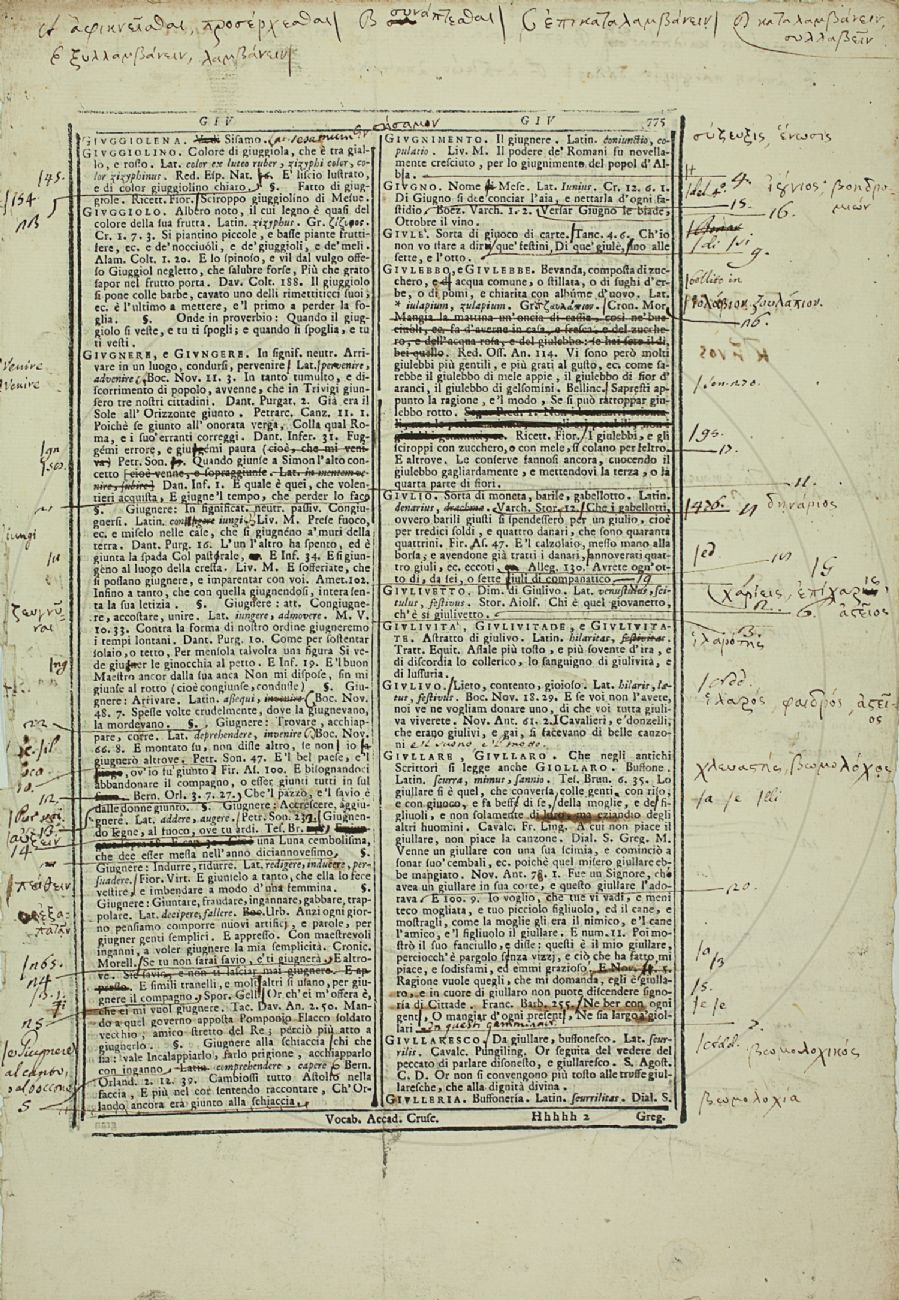 A ἀφικνεῖσθαι, προσέρχεσθαι B συνάπτεσθαι C ἐπικαταλαμβάνειν D καταλαμβάνειν,
συλλαβεῖν
E ξυλλαμβάνειν, λαμβάνειν
GIV GIV 775
GIVGGIOLENA. Sisamo.
GIVGGIOLINO. Colore di giuggiola, che è tra gial-
lo, e rosso. Lat. color ex luteo ruber, zizyphi color, co-
lor zizyphinus. Red. Esp. Nat. E' liscio lustrato,
e di color giuggiolino chiaro. §. Fatto di giug-
giole. Ricett. Fior. Sciroppo giuggiolino di Mesue.
GIVGGIOLO. Albero noto, il cui legno è quasi del
colore della sua frutta. Latin. zizyphus. Gr. ζίζυφος.
Cr. 1. 7. 3. Si piantino piccole, e basse piante frutti-
fere, ec. e de'nocciuóli, e de'giuggioli, e de'meli.
Alam. Colt. 1. 20. E lo spinoso, e vil dal vulgo offe-
so Giuggiol negletto, che salubre forse, Più che grato
sapor nel frutto porta. Dav. Colt. 188. Il giuggiolo
si pone colle barbe, cavato uno delli rimettiticci suoi;
ec. è l'ultimo a mettere, e'l primo a perder la fo-
glia. §. Onde in proverbio: Quando il giug-
giolo si veste, e tu ti spogli; e quando si spoglia, e tu
ti vesti.
GIVGNERE, e GIVNGERE. In signif. neutr. Arri-
vare in un luogo, condursi, pervenire. Lat. pervenire,
advenire. Boc. Nov. 11. 3. In tanto tumulto, e di-
scorrimento di popolo, avvenne, che in Trivigi giun-
sero tre nostri cittadini. Dant. Purgat. 2. Già era il
Sole all'Orizzonte giunto. Petrarc. Canz. 11. 1.
Poichè se giunto all'onorata verga, Colla qual Ro-
ma, e i suo'erranti correggi. Dant. Infer. 31. Fug-
gémi errore, e giugnemi paura (cioè, che mi veni-
va) Petr. Son. Quando giunse a Simon l'alto con-
cetto (cioè venne, e sopraggiunse. Lat. in mentem ve-
nire, subire) Dan. Inf. 1. E quale è quei, che volen-
tieri acquista, E giugne'l tempo, che perder lo face
§. Giugnere: In significat. neutr. passiv. Congiu-
gnersi. Latin. iungi. Liv. M. Prese fuoco,
ec. e miselo nelle case, che si giugnéno a'muri della
terra. Dant. Purg. 16. L'un l'altro ha spento, ed è
giunta la spada Col pastorale, E Inf. 34. E si giun-
géno al luogo della cresta. Liv. M. E sofferiate, che
si possano giugnere, e imparentar con voi. Amet. 102.
Infino a tanto, che con quella giugnendosi, intera sen-
ta la sua letizia. §. Giugnere: att. Congiugne-
re, accostare, unire. Lat. iungere, admovere. M. V.
10. 33. Contra la forma di nostro ordine giugneremo
i tempi lontani. Dant. Purg. 10. Come per sostentar
solaio, o tetto, Per mensola talvolta una figura Si ve-
de giugner le ginocchia al petto. E Inf. 19. E'l buon
Maestro ancor dalla sua anca Non mi dispose, sin mi
giunse al rotto (cioè congiunse, condusse) §. Giu-
gnere: Arrivare. Latin. assequi, invenire. Boc. Nov.
48. 7. Spesse volte crudelmente, dove la giugnevano,
la mordevano. §. Giugnere: Trovare, acchiap-
pare, corre. Lat. deprehendere, invenire. Boc. Nov.
66. 8. E montato su, non disse altro, se non io
giugnerò altrove. Petr. Son. 47. E'l bel paese, e'l
luogo, ov'io fu'giunto. Fir. As. 100. E bisognando; i
abbandonare il compagno, o esser giunti tutti in sul
Bern. Orl. 3. 7. 27. Che'l pazzo, e'l savio è
dalle donne giunto. §. Giugnere: Accrescere, aggiu-
gnere. Lat. addere, augere. Petr. Son. 232. Giugnen-
do legne, al fuoco, ove tu ardi. Tes. Br.
una Luna cembolisma,
che dee esser messa nell'anno diciannovesimo, §.
Giugnere: Indurre, ridurre. Lat. redigere, inducere, per-
suadere. Fior. Virt. E giunselo a tanto, che ella lo fece
vestire, e imbendare a modo d'una femmina. §.
Giugnere: Giuntare, fraudare, ingannare, gabbare, trap-
polare. Lat. decipere, fallere. Boc. Urb. Anzi ogni gior-
no pensiamo comporre nuovi artifici, e parole, per
giugner genti semplici. E appresso. Con maestrevoli
inganni, a voler giugnere la mia semplicità. Cronic.
Morell. Se tu non farai savio, e'ti giugnerà. E altro-
ve. Sie savio, e non ti lasciar mai giugnere. E ap-
presso. E simili tranelli, e molti altri si usano, per giu-
gnere il compagno. Spor. Gell. Or ch'ei m'offera è,
che ei mi vuol giugnere. Tac. Dav. An. 2. 50. Man-
do a quel governo apposta Pomponio Flacco soldato
vecchio, amico stretto del Re; perciò più atto a
giugnerlo. §. Giugnere alla schiaccia, chi che
sia: vale Incalappiarlo, farlo prigione, acchiapparlo
con inganno. Latin. comprehendere, capere. Bern.
Orland. 2. 12. 39. Cambiossi tutto Astolfo nella
faccia, E più nel cor sentendo raccontare, Ch'Or-
lando ancora era giunto alla schiaccia.
GIVGNIMENTO. Il giugnere. Latin. coniunctio, co-
pulatio. Liv. M. Il podere de'Romani fu novella-
mente cresciuto, per lo giugnimento del popol d'Al-
bia.
GIVGNO. Nome di Mese. Lat. Iunius. Cr. 12. 6. 1.
Di Giugno si dee conciar l'aia, e nettarla d'ogni fa-
stidio. Boez. Varch. 1. 2. Versar Giugno le biade,
Ottobre il vino.
GIVLE'. Sorta di giuoco di carte. Tanc. 4. 6. Ch'io
non vo stare a dir que'festini, Di que'giulè, sino alle
sette, e l'otto.
GIVLEBBO, e GIVLEBBE. Bevanda, composta di zuc-
chero, e d'acqua comune, o stillata, o di sughi d'er-
be, o di pomi, e chiarita con albúme d'uovo. Lat.
* iulapium, zulapium. Gr. Cron. Mor.
Mangia la mattina un'oncia di cassia, così ne'buc-
ciuóli, ec. fa d'averne in casa, e fresca, e del zucche-
ro, e dell'acqua rosa, e del giulebbo: se hai sete il dì,
bei quello. Red. Oss. An. 114. Vi sono però molti
giulebbi più gentili, e più grati al gusto, ec. come sa-
rebbe il giulebbo di mele appie, il giulebbo di fior d'
aranci, il giulebbo di gelsomini. Bellinc. Sapresti ap-
punto la ragione, e'l modo, Se si può rattoppar giu-
lebbo rotto.
Ricett. Fior. I giulebbi, e gli
sciroppi con zucchero, o con mele, si colano per feltro.
E altrove. Le conserve fannosi ancora, cuocendo il
giulebbo gagliardamente, e mettendovi la terza, o la
quarta parte di fiori.
GIVLIO. Sorta di moneta, barile, gabellotto. Latin.
denarius, drachma. Varch. Stor. 12. Che i gabellotti,
ovvero barili giusti si spendessero per un giulio, cioè
per tredici soldi, e quattro danari, che sono quaranta
quattrini. Fir. As. 47. E'l calzolaio, messo mano alla
borsa, e avendone già tratti i danari, annoverati quat-
tro giuli, ec. eccoti, Alleg. 130. Avrete ogn'ot-
to dì, da sei, o sette giuli di companatico
GIVLIVETTO. Dim. di Giulivo. Lat. venustulus, sci-
tulus, festivus. Stor. Aiolf. Chi è quel giovanetto,
ch'è sì giulivetto.
GIVLIVITA', GIVLIVITADE, e GIVLIVITA-
TE. Astratto di giulivo. Latin. hilaritas, festivitas.
Tratt. Equit. Assale più tosto, e più sovente d'ira, e
di discordia lo collerico, lo sanguigno di giulività, e
di lussuria.
GIVLIVO. Lieto, contento, gioioso. Lat. hilaris, læ-
tus, festivus. Boc. Nov. 18. 29. E se voi non l'avete,
noi ve ne vogliam donare uno, di che voi tutta giuli-
va viverete. Nov. Ant. 61. 2. I Cavalieri, e'donzelli,
che erano giulivi, e gai, si facevano di belle canzo-
ni e'l suono, e'l motto.
GIVLLARE, GIVLLARO. Che negli antichi
Scrittori si legge anche GIOLLARO. Buffone.
Latin. scurra, mimus, sannio. Tes. Brun. 6. 35. Lo
giullare si è quel, che conversa colle genti, con riso,
e con giuoco, e fa beffe di se, della moglie, e de'fi-
gliuoli, e non solamente di loro, ma eziandio degli
altri huomini. Cavalc. Fr. Ling. A cui non piace il
giullare, non piace la canzone. Dial. S. Greg. M.
Venne un giullare con una sua scimia, e cominciò a
sonar suo'cembali, ec. poichè quel misero giullare eb-
be mangiato. Nov. Ant. 78. 1. Fue un Signore, ché
avea un giullare in sua corte, e questo giullare l'ado-
rava. E 100. 9. Io voglio, che tue vi vadi, e meni
teco mogliata, e tuo picciolo figliuolo, ed il cane, e
mostragli, come la moglie gli era il nimico, e'l cane
l'amico, e'l figliuolo il giullare. E num. 11. Poi mo-
strò il suo fanciullo, e disse: questi è il mio giullare,
perciocch'è pargolo senza vizzj, e ciò che ha fatto mi
piace, e sodisfami, ed emmi grazioso. E Nov. 5.
Ragione vuole quegli, che mi domanda, egli è giulla-
ro, e in cuore di giullaro non puote discendere signo-
ria di Cittade. Franc. Barb. 255. Ne ber con ogni
gent, O mangiar d'ogni present, Ne sia largo a'giol-
lari
GIVLLARESCO. Da giullare, buffonesco. Lat. scur-
rilis. Cavalc. Pungiling. Or seguita del vedere del
peccato di parlare disonesto, e giullaresco. S. Agost.
C. D. Or non si convengono più tosto alle truffe giul-
laresche, che alla dignità divina.
GIVLLERIA. Buffoneria. Latin. scurrilitas. Dial. S.
Vocab. Accad. Crusc. Hhhhh 2 Greg.
σύζευξις, ἕνωσις
δηνάριος
ἱλαρότης
βωμολοχικός
βωμολοχία